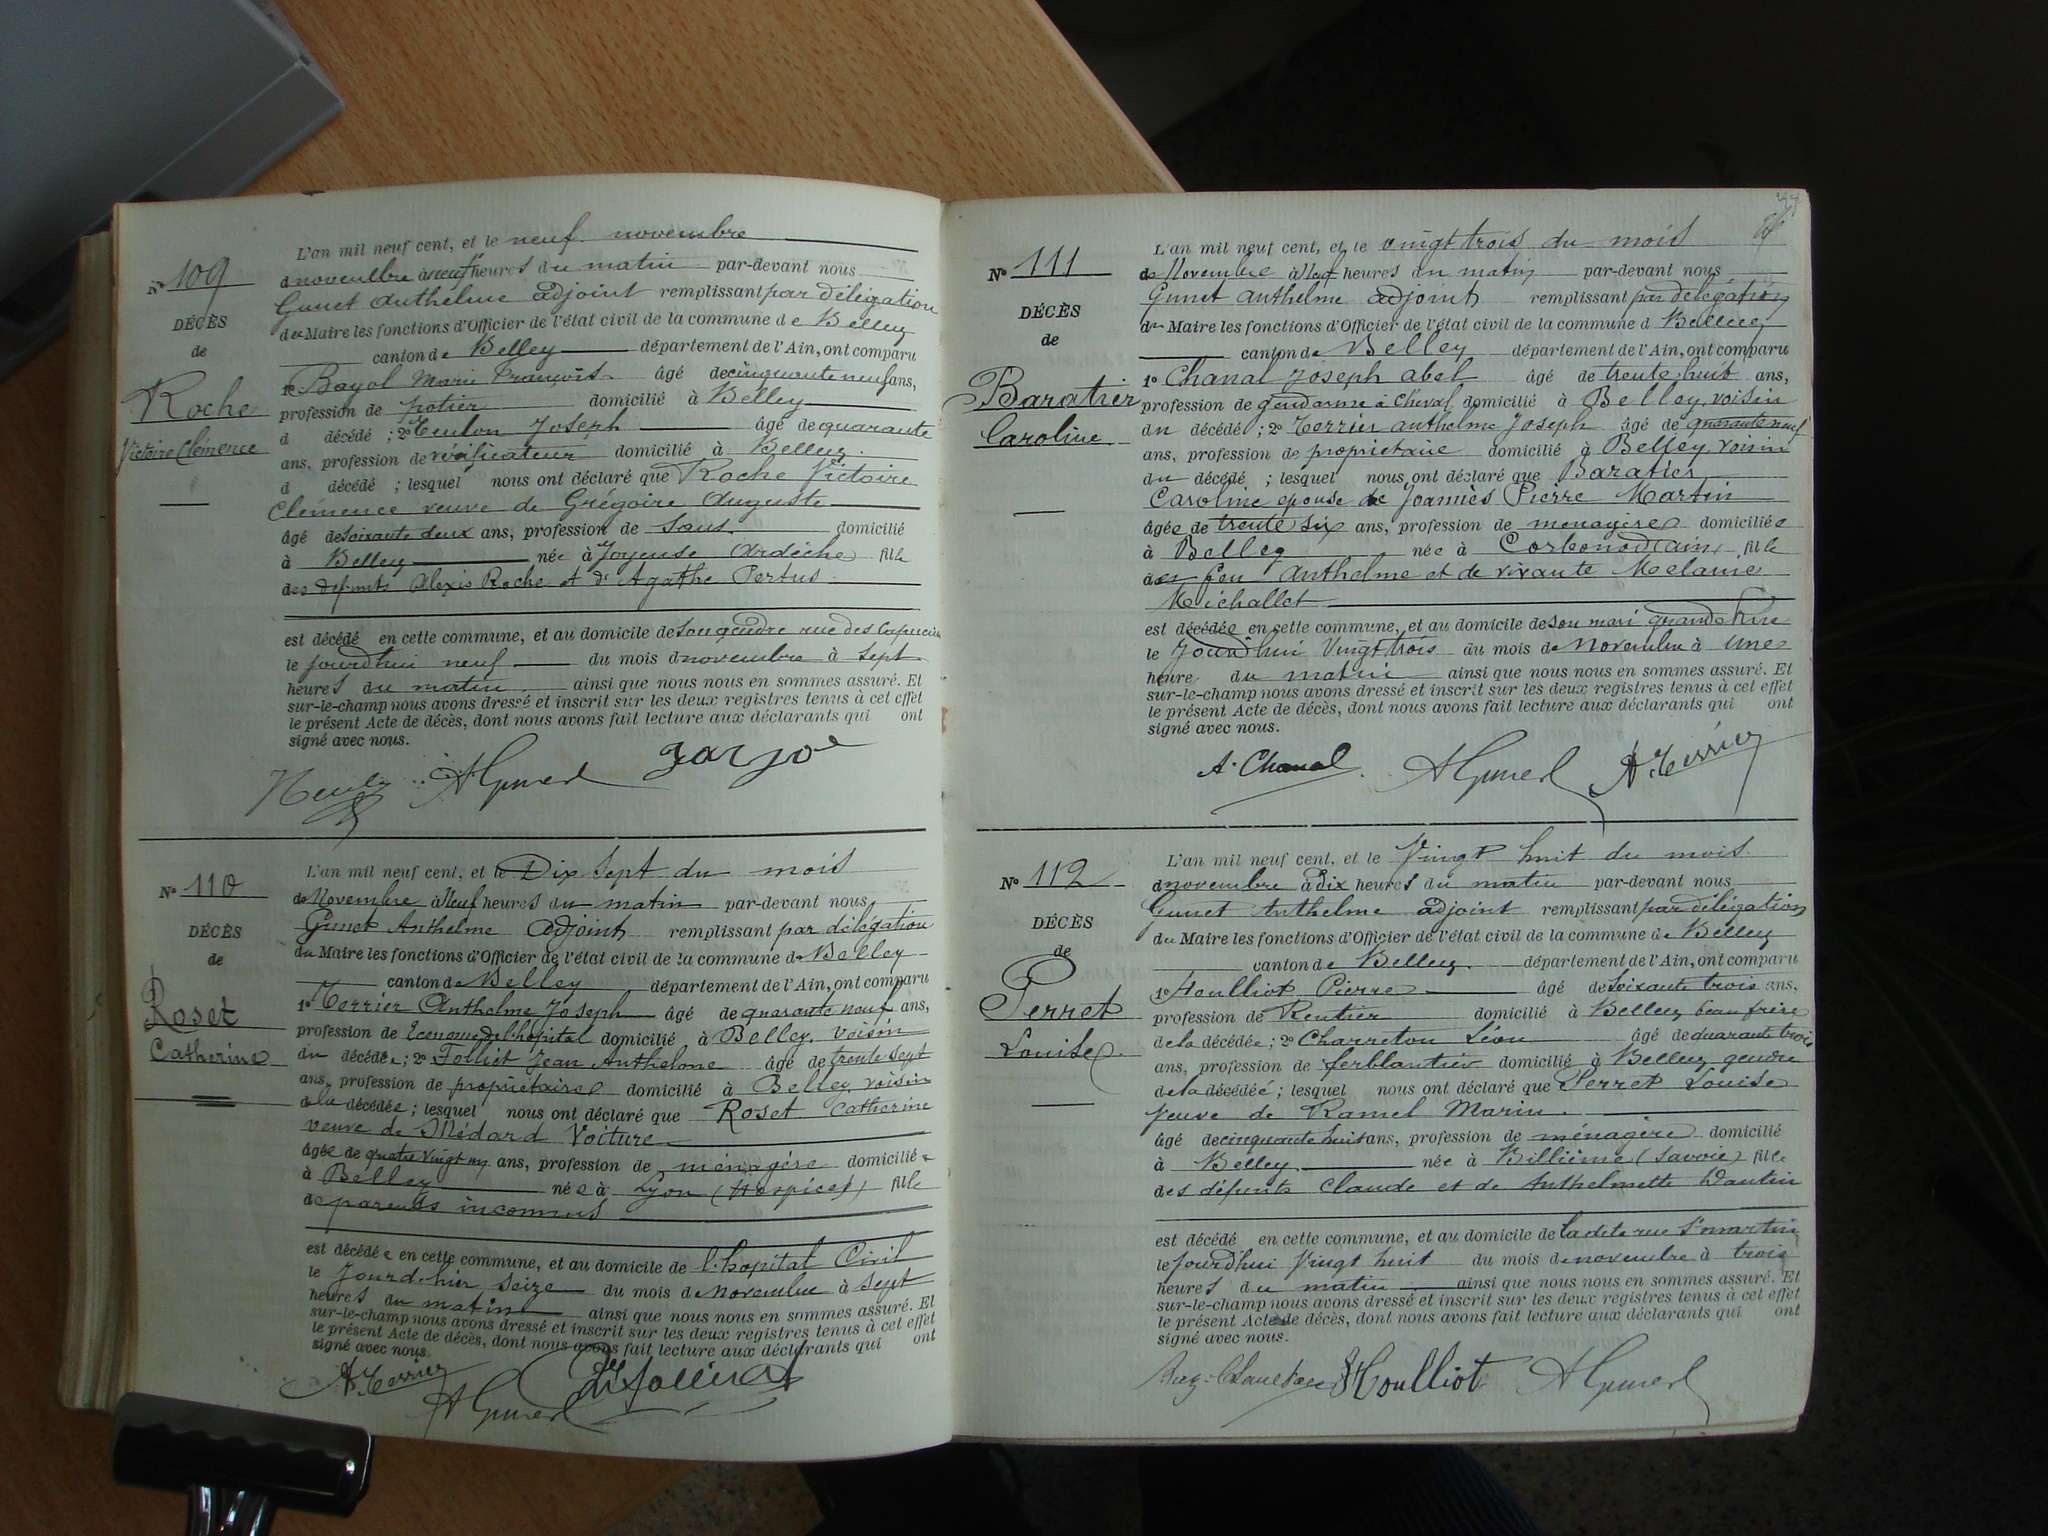 N° 109
DÉCÈS
de
Roche
Victoire Clémence
L'an mil neuf cent, et le neuf novembre
d novembre à neuf heures du matin par-devant nous
Gunet Anthelme adjoint remplissant par délégation
du Maire les fonctions d'Officier de l'état civil de la commune de Belley
canton de Belley département de l'Ain, ont comparu
1° Bayol Marie François âgé de cinquante neuf ans,
profession de potier domicilié à Belley
d décédé ; 2° Joseph âgé de quarante
ans, profession de vérificateur domicilié à Belley
d décédé ; lesquel nous ont déclaré que Roche Victoire
Clémence veuve de Grégoire Auguste
âgé de soixante deux ans, profession de sans domicilié
à Belley née à Joyeuse Ardèche fille
des défunts Alexis Roche et d'Agathe Pertus
est décédé en cette commune, et au domicile de son gendre rue des Capucins
le jourd'hui neuf du mois d novembre à sept
heures du matin ainsi que nous nous en sommes assuré. Et
sur-le-champ nous avons dressé et inscrit sur les deux registres tenus à cet effet
le présent Acte de décès, dont nous avons fait lecture aux déclarants qui ont
signé avec nous.
AGunet
N° 110
DÉCÈS
de
Roset
Catherine
L'an mil neuf cent, et le Dix sept du mois
de Novembre à Neuf heures du matin par-devant nous
Gunet Anthelme adjoint remplissant par délégation
du Maire les fonctions d'Officier de l'état civil de la commune de Belley
canton de Belley département de l'Ain, ont comparu
1° Terrier Anthelme Joseph âgé de quarante neuf ans,
profession de Econome de l'hopital domicilié à Belley, voisin
du décédée ; 2° Folliet Jean Anthelme âgé de trente sept
ans, profession de propriétaire domicilié à Belley voisin
de la décédée ; lesquel nous ont déclaré que Roset Catherine
veuve de Médard Voiture
âgée de quatre vingt ans, profession de ménagère domiciliée
à Belley née à Lyon (Hospices) fille
de parents inconnus
est décédée en cette commune, et au domicile de l'hopital Civil
le jour d'hier seize du mois de Novembre à sept
heures du matin ainsi que nous nous en sommes assuré. Et
sur-le-champ nous avons dressé et inscrit sur les deux registres tenus à cet effet
le présent Acte de décès, dont nous avons fait lecture aux déclarants qui ont
signé avec nous.
A. Terrier
AGunet
N° 111
DÉCÈS
de
Baratier
Caroline
L'an mil neuf cent, et le vingt trois du mois
de Novembre à Neuf heures du matin par-devant nous
Gunet Anthelme adjoint remplissant par délégation
du Maire les fonctions d'Officier de l'état civil de la commune d Belley
canton de Belley département de l'Ain, ont comparu
1° Chanal Joseph Abel âgé de trente huit ans,
profession de gendarme à cheval domicilié à Belley, voisin
du décédé ; 2° Terrier Anthelme Joseph âgé de quarante neuf
ans, profession de propriétaire domicilié à Belley, voisin
du décédé ; lesquel nous ont déclaré que Baratier
Caroline épouse de Joannès Pierre Martin
âgée de trente six ans, profession de ménagère domiciliée
à Belley née à Corbonod (Ain) fille
de feu Anthelme et de vivante Mélanie
Michallet
est décédée en cette commune, et au domicile de son mari grande rue
le jourd'hui vingt trois du mois de Novembre à une
heure du matin ainsi que nous nous en sommes assuré. Et
sur-le-champ nous avons dressé et inscrit sur les deux registres tenus à cet effet
le présent Acte de décès, dont nous avons fait lecture aux déclarants qui ont
signé avec nous.
A. Chanal AGunet A. Terrier
N° 112
DÉCÈS
de
Perret
Louise
L'an mil neuf cent, et le Vingt huit du mois
d novembre à dix heures du matin par-devant nous
Gunet Anthelme adjoint remplissant par délégation
du Maire les fonctions d'Officier de l'état civil de la commune de Belley
canton de Belley département de l'Ain, ont comparu
1° Houlliot Pierre âgé de soixante trois ans,
profession de Rentier domicilié à Belley beau frère
de la décédée ; 2° Charreton Léon âgé de quarante trois
ans, profession de ferblantier domicilié à Belley gendre
de la décédée ; lesquel nous ont déclaré que Perret Louise
veuve de Ramel Marin
âgé de cinquante huit ans, profession de ménagère domicilié
à Belley née à Billième (Savoie) fille
des défunts Claude et de Anthelmette Dantin
est décédé en cette commune, et au domicile de ladite rue St martin
le jourd'hui Vingt huit du mois de novembre à trois
heures du matin ainsi que nous nous en sommes assuré. Et
sur-le-champ nous avons dressé et inscrit sur les deux registres tenus à cet effet
le présent Acte de décès, dont nous avons fait lecture aux déclarants qui ont
signé avec nous.
Houlliot AGunet